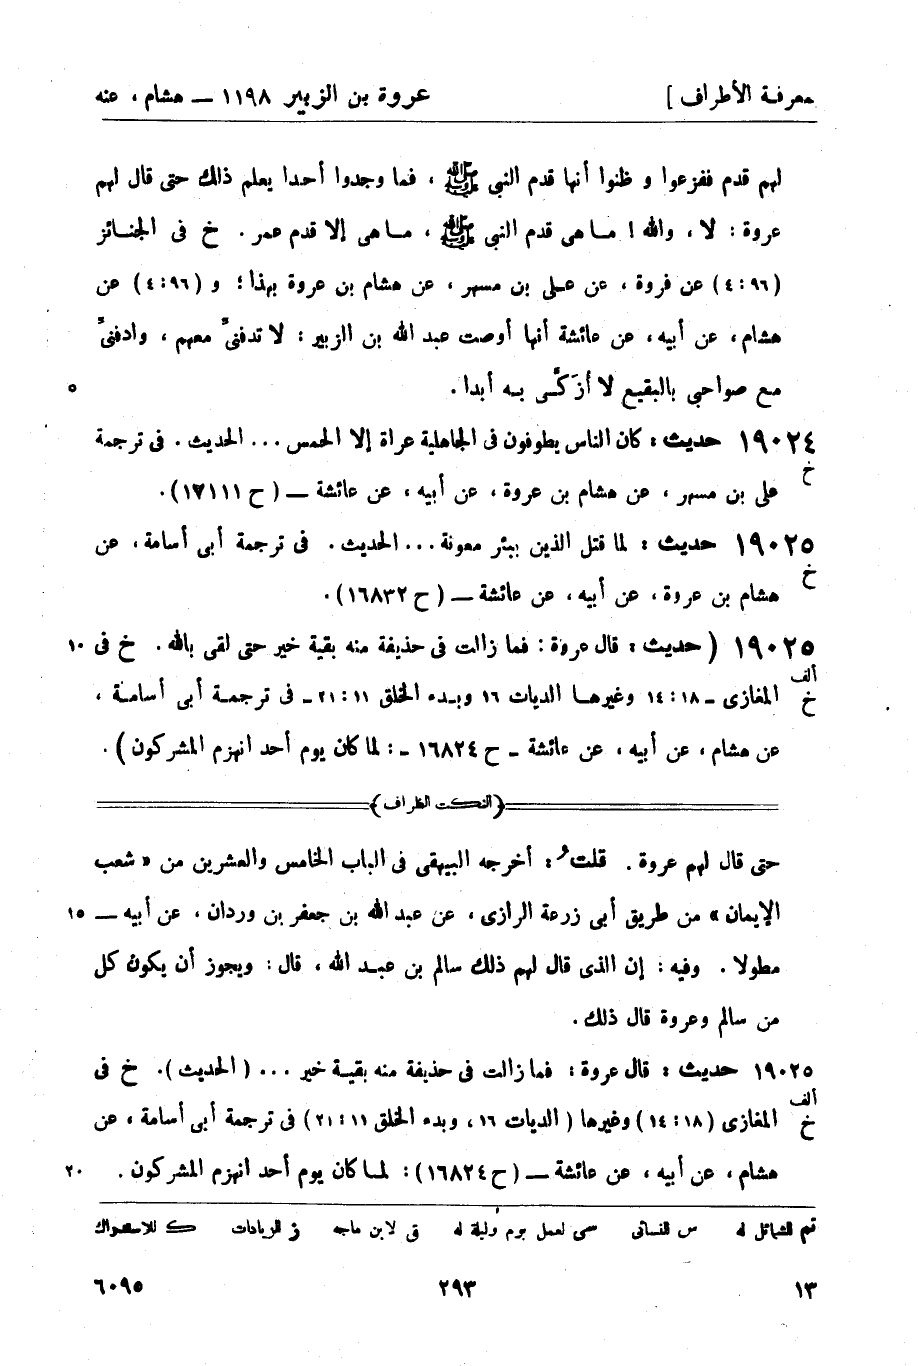 معرفة الأطراف ] عروة بن الزبير ١١٩٨ ــ هشام ، عنه
لهم قدم ففزعوا و ظنوا أنها قدم النبي ﷺ ، فما وجدوا أحدا يعلم ذلك حتى قال لهم
عروة : لا ، والله ! ما هى قدم النبي ﷺ ، ما هى إلا قدم عمر . خ فى الجنائز
(٩٦ : ٤) عن فروة ، عن على بن مسهر ، عن هشام بن عروة بهذا ؛ و (٩٦ : ٤) عن
هشام ، عن أبيه ، عن عائشة أنها أوصت عبد الله بن الزبير : لا تدفنّى معهم ، وادفنّى
مع صواحبي بالبقيع لا أزَكَّى به أبدا . ٥
١٩٠٢٤ حديث : كان الناس يطوفون فى الجاهلية عراة إلا الحمس ... الحديث . فى ترجمة
خ
على بن مسهر ، عن هشام بن عروة ، عن أبيه ، عن عائشة ــ ( ح ١٧١١١) .
١٩٠٢٥ حديث : لما قتل الذين ببئر معونة ... الحديث . فى ترجمة أبى أسامة ، عن
خ
هشام بن عروة ، عن أبيه ، عن عائشة ــ ( ح ١٦٨٣٢) .
١٩٠٢٥ ( حديث : قال عروة : فما زالت فى حذيفة منه بقية خير حتى لقى بالله . خ فى ١٠
ألف
خ
المغازى ـ ١٨ : ١٤ وغيرها الديات ١٦ وبدء الخلق ١١ : ٢١ ـ فى ترجمة أبى أسامة ،
عن هشام ، عن أبيه ، عن عائشة ـ ح ١٦٨٢٤ ـ : لما كان يوم أحد انهزم المشركون ) .
﴿النكت الظراف﴾
حتى قال لهم عروة . قلتُ : أخرجه البيهقى فى الباب الخامس والعشرين من « شعب
الإيمان » من طريق أبى زرعة الرازى ، عن عبد الله بن جعفر بن وردان ، عن أبيه ــ ١٥
مطولا . وفيه : إن الذى قال لهم ذلك سالم بن عبد الله ، قال : ويجوز أن يكون كل
من سالم وعروة قال ذلك .
١٩٠٢٥ حديث : قال عروة : فما زالت فى حذيفة منه بقية خير ... ( الحديث ) . خ فى
ألف
خ
المغازى (١٨ : ١٤) وغيرها ( الديات ١٦ ، وبدء الخلق ١١ : ٢١) فى ترجمة أبى أسامة ، عن
هشام ، عن أبيه ، عن عائشة ــ ( ح ١٦٨٢٤) : لما كان يوم أحد انهزم المشركون . ٢٠
تم للشمائل له س للنسائى سى لعمل يوم وليلة له ق لابن ماجه ز للزيادات ك للاستدراك
١٣ ٢٩٣ ٦٠٩٥